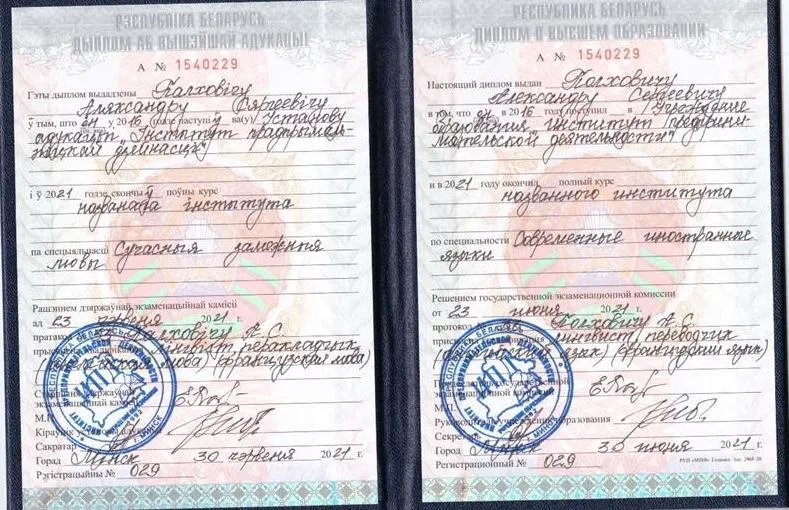 РЭСПУБЛІКА БЕЛАРУСЬ
ДЫПЛОМ АБ ВЫШЭЙШАЙ АДУКАЦЫІ
А № 1540229
Гэты дыплом выдадзены Палховічу
Аляксандру Сяргеевічу
ў тым, што ён у 2016 годзе паступіў ва(у) Установу
адукацыі „Інстытут прадпрымаль-
ніцкай дзейнасці"
і ў 2021 годзе скончыў поўны курс
названага інстытута
па спецыяльнасці Сучасныя замежныя
мовы
Рашэннем дзяржаўнай экзаменацыйнай камісіі
ад 23 чэрвеня 2021 г.
пратакол Палховічу А.С.
лінгвіст, перакладчык
мова) (французская мова)
дзяржаўнай
экзаменацыйнай камісіі
М.П.
Кіраўнік
Сакратар
Горад Мінск 30 чэрвеня 2021 г.
Рэгістрацыйны № 029
РЕСПУБЛИКА БЕЛАРУСЬ
ДИПЛОМ О ВЫСШЕМ ОБРАЗОВАНИИ
А № 1540229
Настоящий диплом выдан Палховичу
Александру Сергеевичу
в том, что он в 2016 году поступил в Учреждение
образования „Институт предприни-
мательской деятельности"
и в 2021 году окончил полный курс
названного института
по специальности Современные иностранные
языки
Решением государственной экзаменационной комиссии
от 23 июня 2021 г.
протокол Палховичу А.С.
лингвист, переводчик
язык) (французский язык)
государственной
экзаменационной комиссии
М.П.
Руководитель учреждения образования
Секретарь
Город Минск 30 июня 2021 г.
Регистрационный № 029